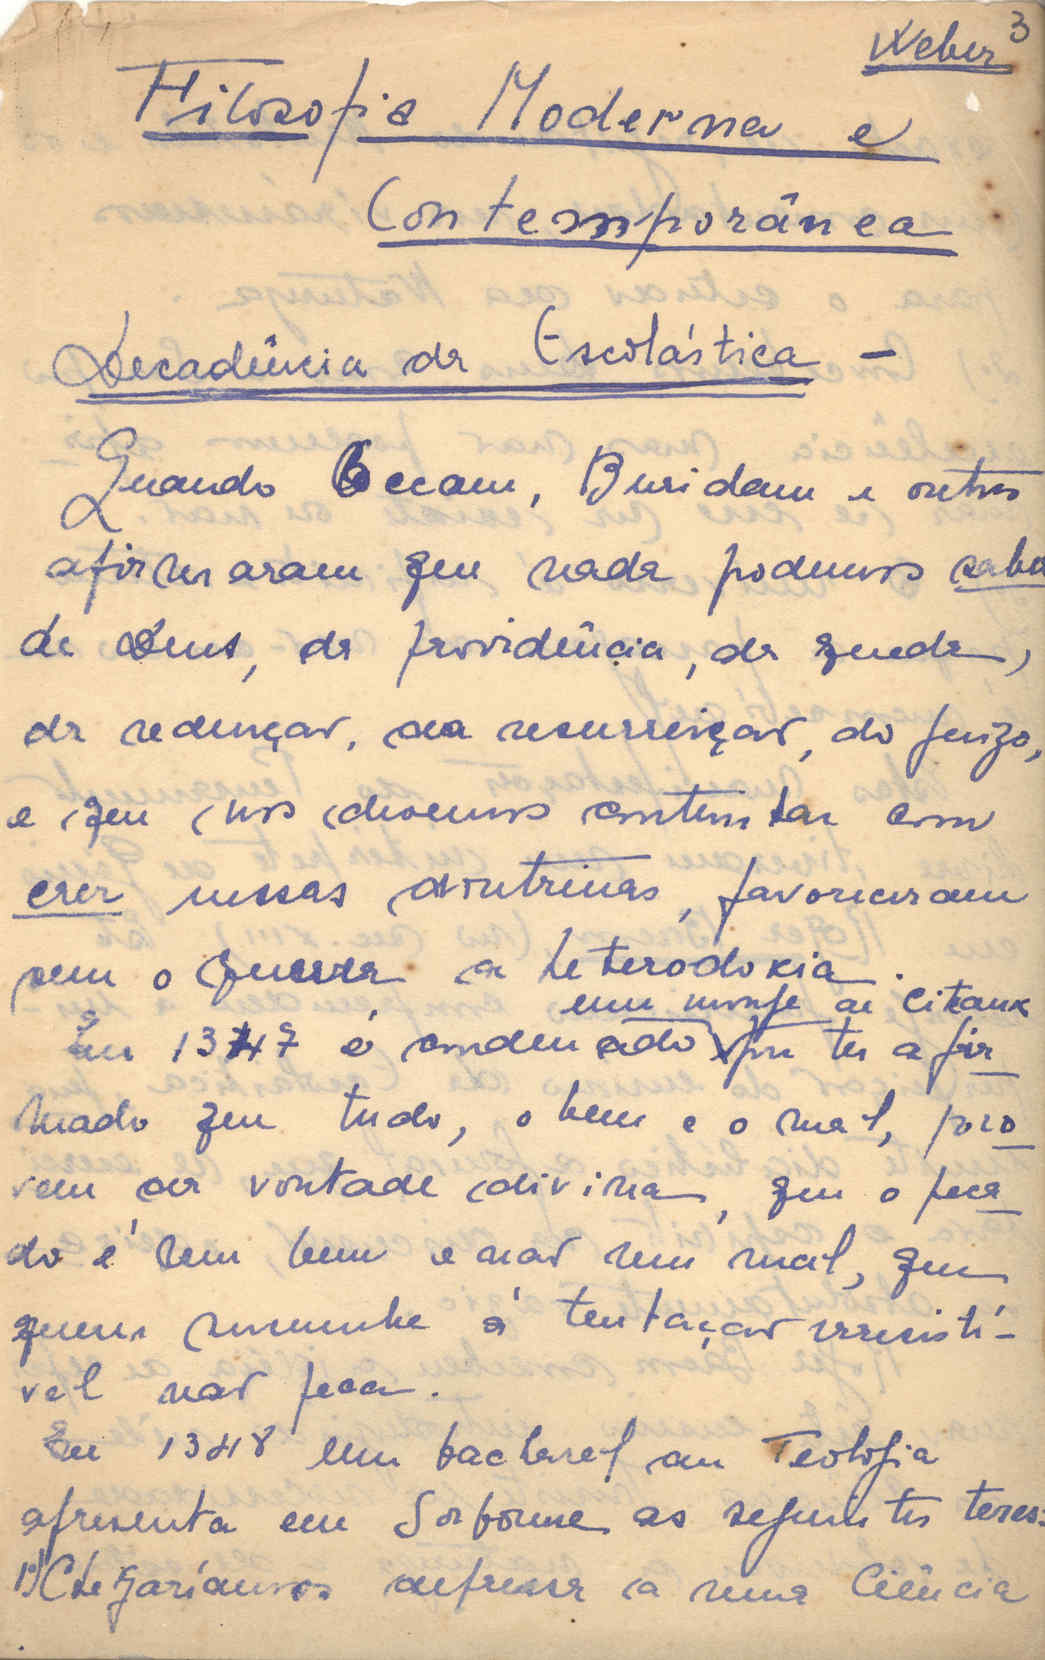 Weber 3
Filosofia Moderna e
Contemporânea
Decadência da Escolástica -
Quando Occam, Buridam e outros
afirmaram que nada podemos saber
de Deus, da providência, da queda,
da redenção, da resurreição, do juizo,
e que nos devemos contentar com
crer nessas doutrinas, favoreceram
sem o querer a heterodoxia.
um monje de Citeaux
Em 1347 é condenado por ter afir
mado que tudo, o bem e o mal, pro
vem da vontade divina, que o peca
do é um bem e não um mal, que
quem sucumbe á tentação irresistí-
vel não peca.
Em 1348 um bacharel em Teologia
apresenta em Sorbonne as seguintes teses:
1) Chegaríamos depressa a uma Ciência